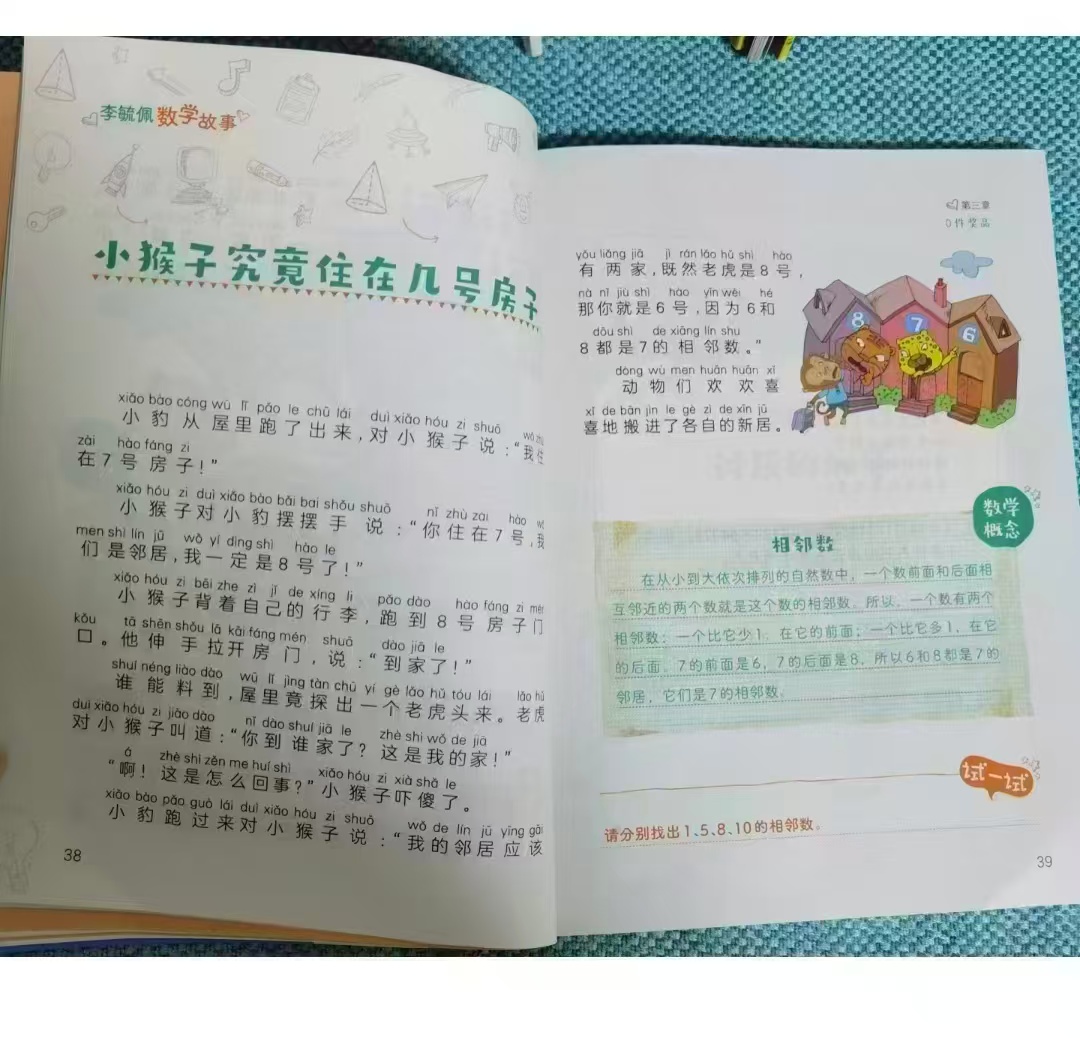 李毓佩数学故事
小猴子究竟住在几号房子
xiǎo bào cóng wū lǐ pǎo le chū lái duì xiǎo hóu zi shuō
小豹从屋里跑了出来，对小猴子说：“我住
zài hào fáng zi
在7号房子！”
xiǎo hóu zi duì xiǎo bào bǎi bai shǒu shuō nǐ zhù zài hào
小猴子对小豹摆摆手说：“你住在7号，我
men shì lín jū wǒ yí dìng shì hào le
们是邻居，我一定是8号了！”
xiǎo hóu zi bēi zhe zì jǐ de xíng li pǎo dào hào fáng zi mén
小猴子背着自己的行李，跑到8号房子门
kǒu tā shēn shǒu lā kāi fáng mén shuō dào jiā le
口。他伸手拉开房门，说：“到家了！”
shuí néng liào dào wū lǐ jìng tàn chū yí gè lǎo hǔ tóu lái lǎo hǔ
谁能料到，屋里竟探出一个老虎头来。老虎
duì xiǎo hóu zi jiào dào nǐ dào shuí jiā le zhè shì wǒ de jiā
对小猴子叫道：“你到谁家了？这是我的家！”
á zhè shì zěn me huí shì xiǎo hóu zi xià shǎ le
“啊！这是怎么回事？”小猴子吓傻了。
xiǎo bào pǎo guò lái duì xiǎo hóu zi shuō wǒ de lín jū yīng gāi
小豹跑过来对小猴子说：“我的邻居应该
38
第三章
0件奖品
yǒu liǎng jiā jì rán lǎo hǔ shì hào
有两家，既然老虎是8号，
nà nǐ jiù shì hào yīn wèi hé
那你就是6号，因为6和
dōu shì de xiāng lín shù
8都是7的相邻数。”
dòng wù men huān huān xǐ
动物们欢欢喜
xǐ de bān jìn le gè zì de xīn jū
喜地搬进了各自的新居。
8
7
6
数学
概念
相邻数
在从小到大依次排列的自然数中，一个数前面和后面相
互邻近的两个数就是这个数的相邻数。所以，一个数有两个
相邻数：一个比它少1，在它的前面；一个比它多1，在它
的后面。7的前面是6，7的后面是8，所以6和8都是7的
邻居，它们是7的相邻数。
试一试
请分别找出1、5、8、10的相邻数。
39